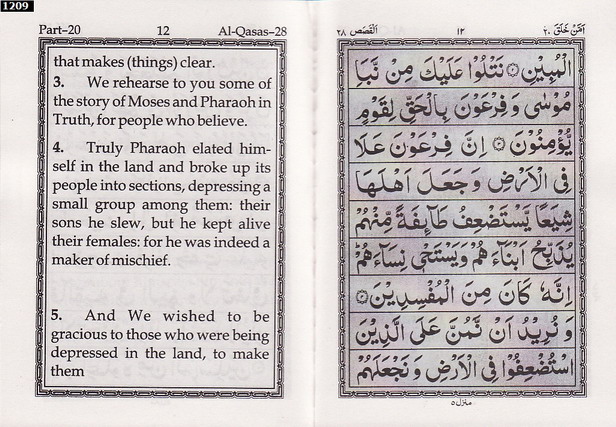 1209
Part-20 12 Al-Qasas-28
that makes (things) clear.
3. We rehearse to you some of
the story of Moses and Pharaoh in
Truth, for people who believe.
4. Truly Pharaoh elated him-
self in the land and broke up its
people into sections, depressing a
small group among them: their
sons he slew, but he kept alive
their females: for he was indeed a
maker of mischief.
5. And We wished to be
gracious to those who were being
depressed in the land, to make
them
اَمَّنْ خَلَقَ ۲۰ ۱۲ اَلْقَصَص ۲۸
الْمُبِيْنِ ۝ نَتْلُوْا عَلَيْكَ مِنْ نَّبَاِ
مُوْسٰى وَ فِرْعَوْنَ بِالْحَقِّ لِقَوْمٍ
يُّؤْمِنُوْنَ ۝ اِنَّ فِرْعَوْنَ عَلَا
فِى الْاَرْضِ وَ جَعَلَ اَهْلَهَا
شِيَعًا يَّسْتَضْعِفُ طَآئِفَةً مِّنْهُمْ
يُذَبِّحُ اَبْنَآءَ هُمْ وَيَسْتَحْىٖ نِسَآءَهُمْ
اِنَّهٗ كَانَ مِنَ الْمُفْسِدِيْنَ ۝
وَ نُرِيْدُ اَنْ نَّمُنَّ عَلَى الَّذِيْنَ
اسْتُضْعِفُوْا فِى الْاَرْضِ وَ نَجْعَلَهُمْ
منزل ۵